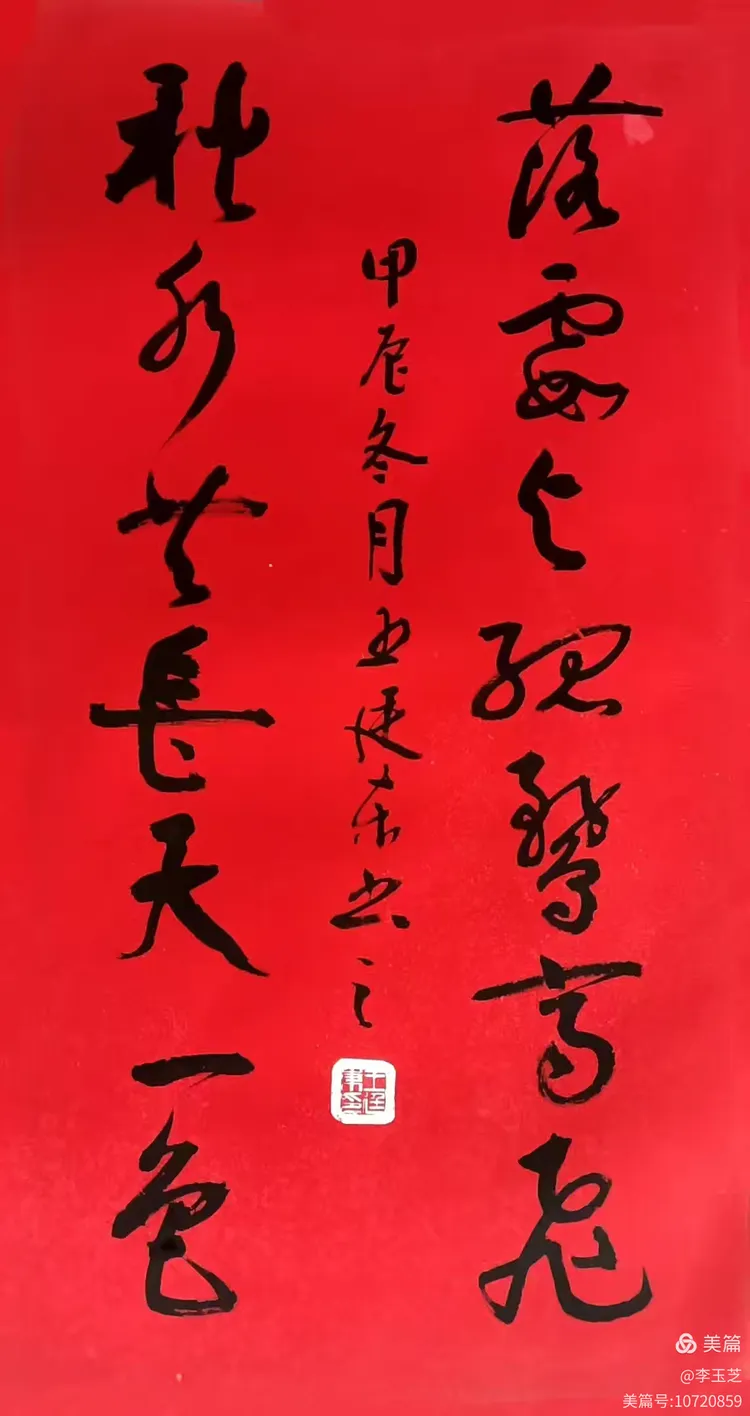 落霞与孤鹜齐飞
秋水共長天一色
甲辰冬月王廷东书之
美篇
@李玉芝
美篇号:10720859